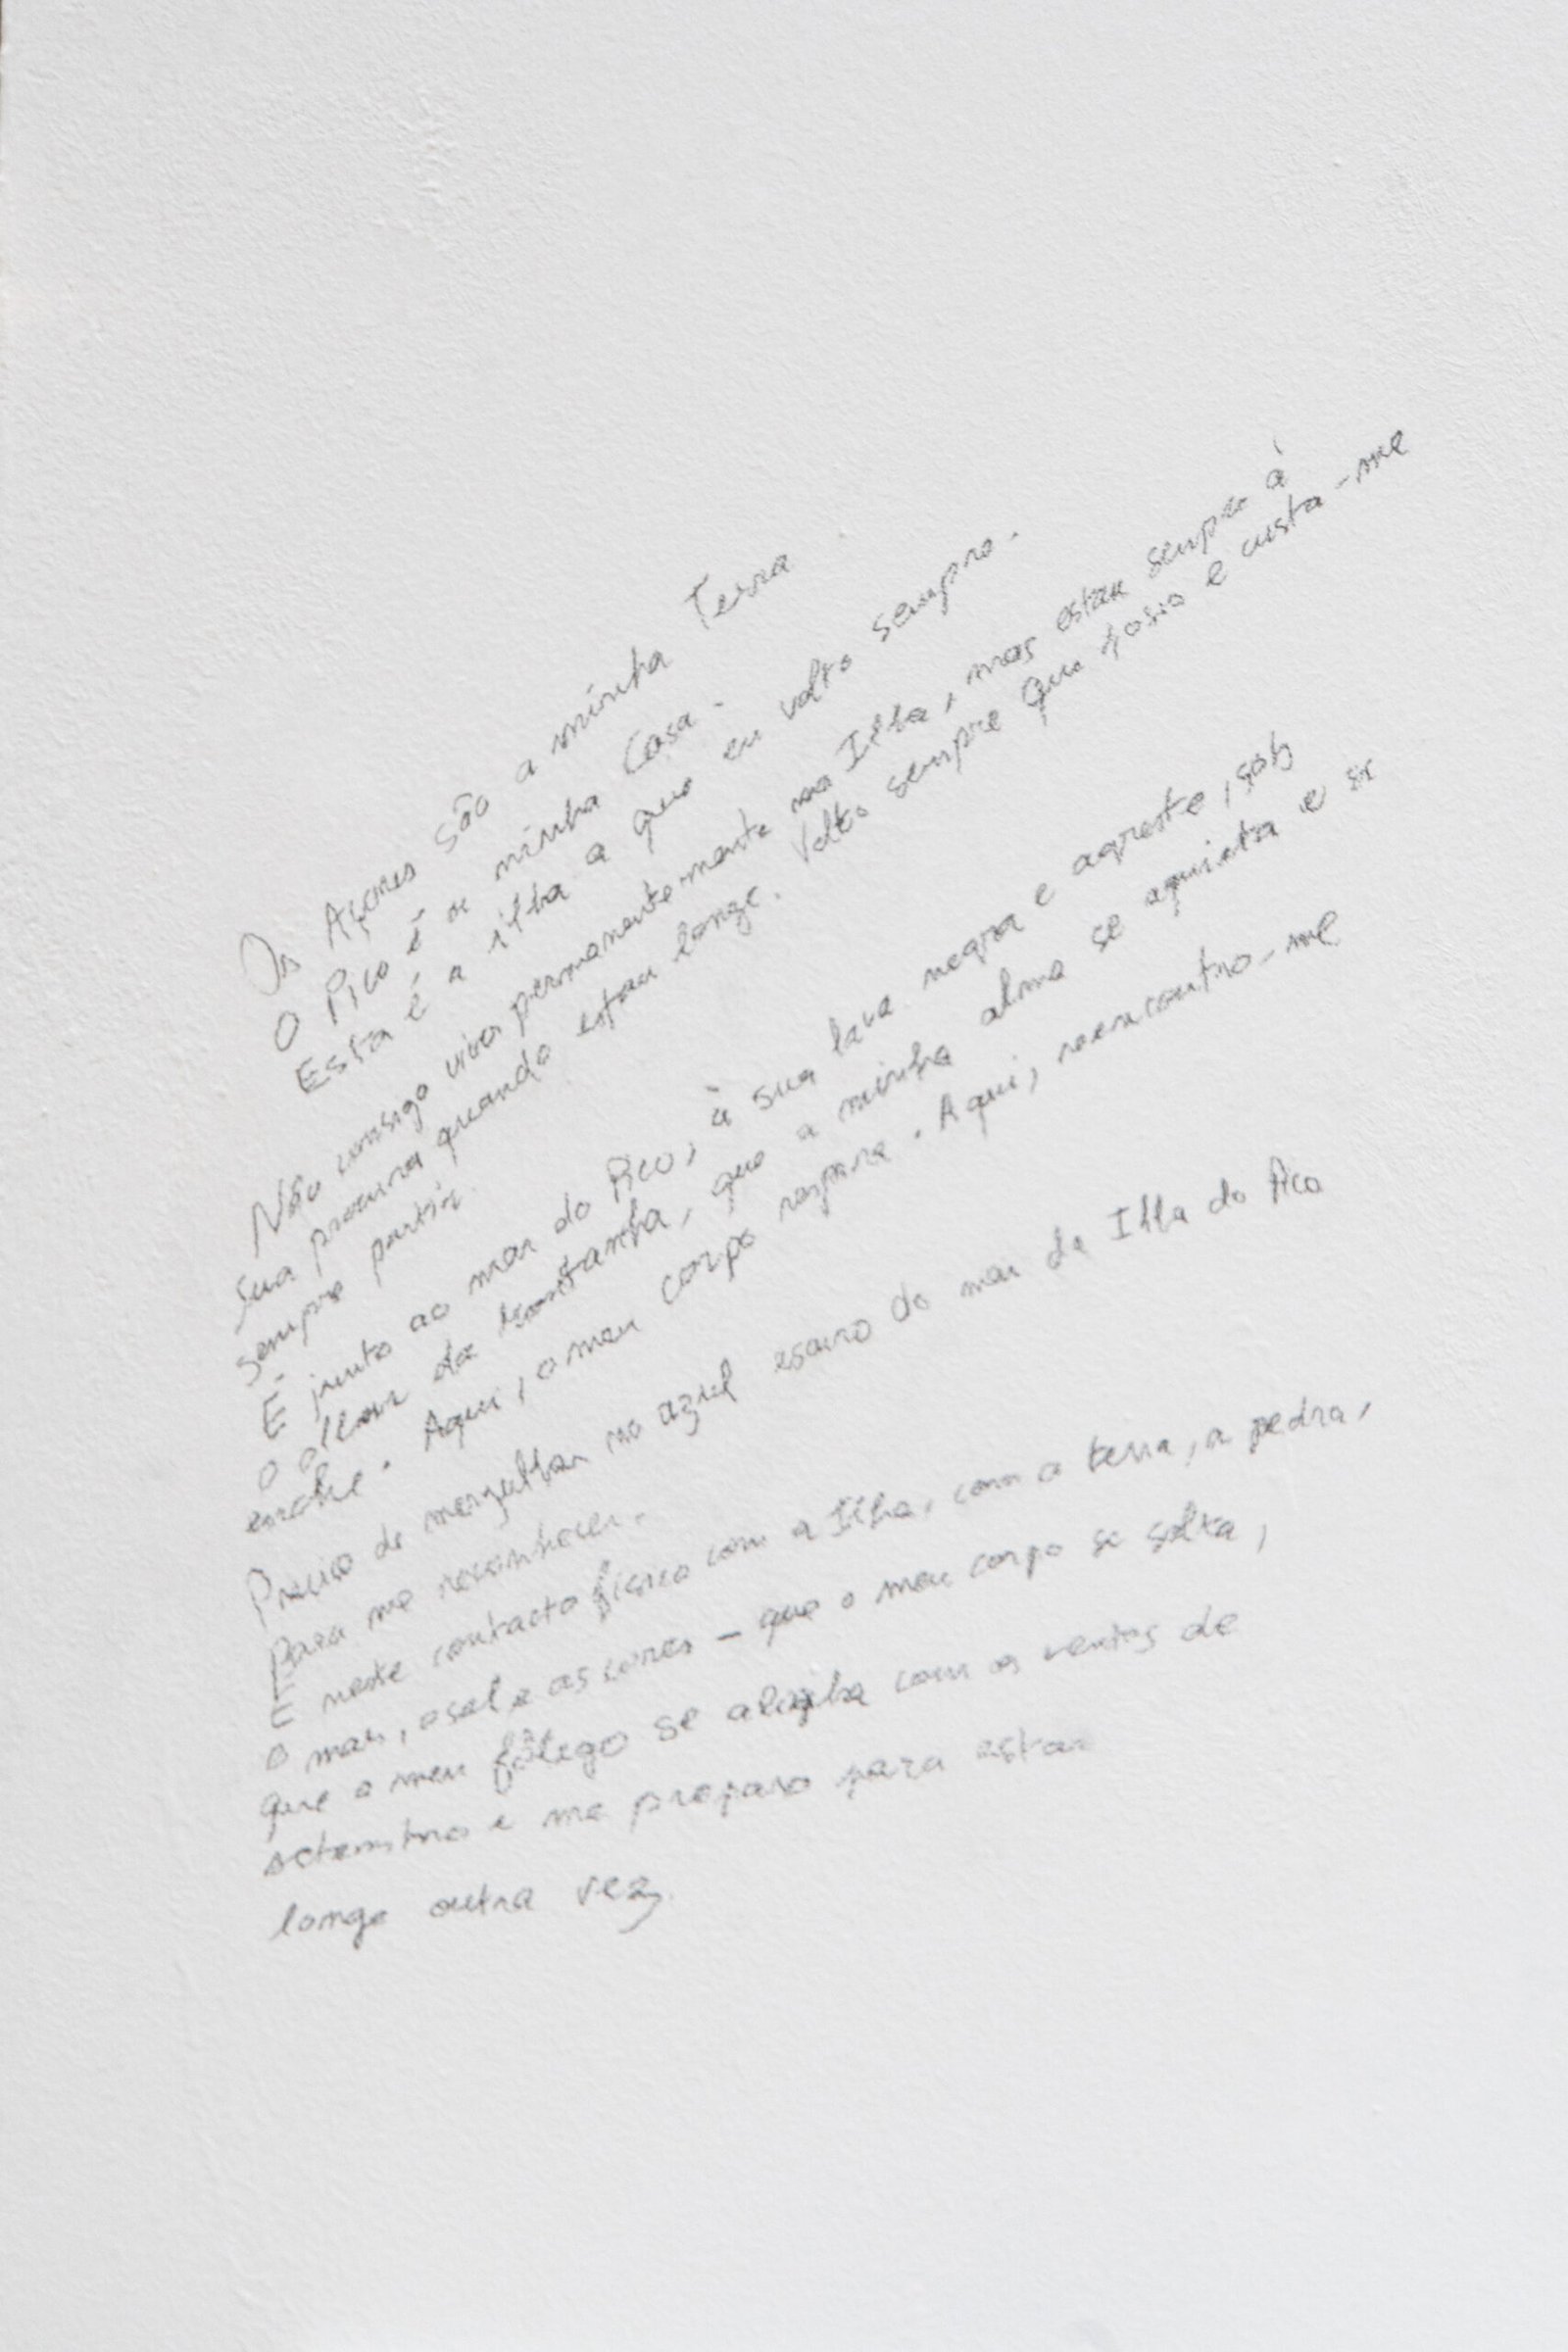 Os Açores são a minha Terra
O Pico é a minha Casa.
Esta é a ilha a que eu volto sempre.
Não consigo viver permanentemente na Ilha, mas estou sempre à
sua procura quando estou longe. Volto sempre que posso e custa-me
sempre partir
É junto ao mar do Pico, à sua lava negra e agreste, sob
o olhar da Montanha, que a minha alma se aquieta e se
enche. Aqui, o meu corpo respira. Aqui, reencontro-me
Preciso de mergulhar no azul escuro do mar da Ilha do Pico
Para me reconhecer.
É neste contacto físico com a Ilha, com a terra, a pedra,
o mar, o sal e as cores - que o meu corpo se solta,
que o meu fôlego se alinha com os ventos de
setembro e me preparo para estar
longe outra vez